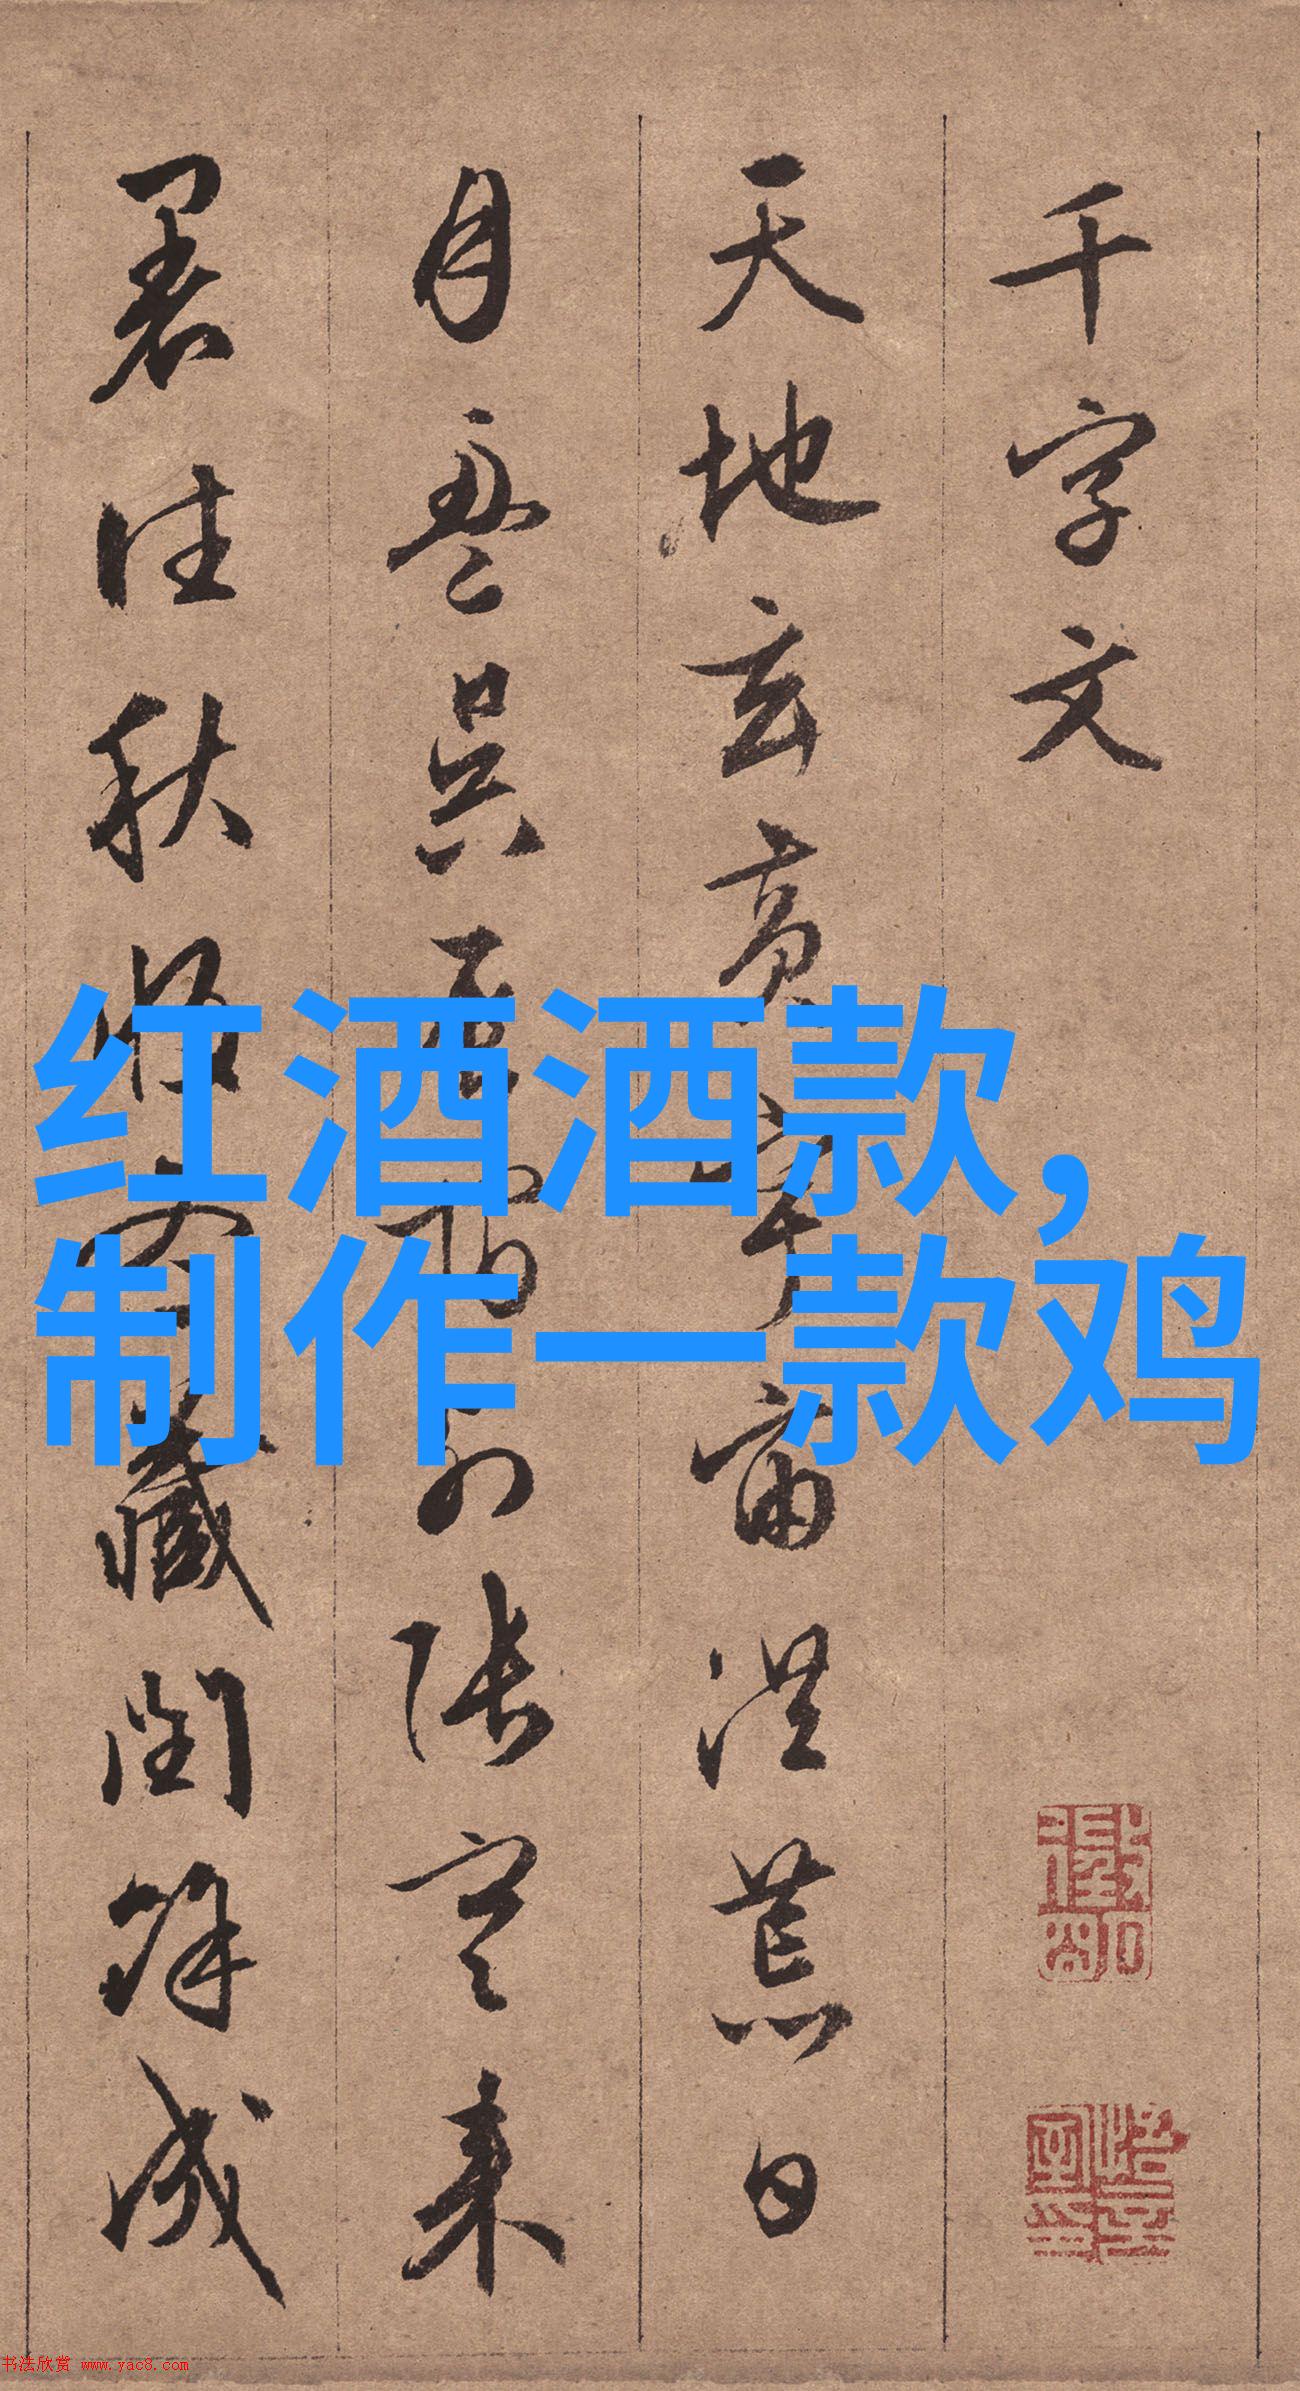 千字文
天地玄黄宇宙洪荒日
月盈昃辰宿列張寒来
暑往秋收冬藏閏餘成
红酒酒款，
制作一款鸡
书法欣赏 www.yac8.com